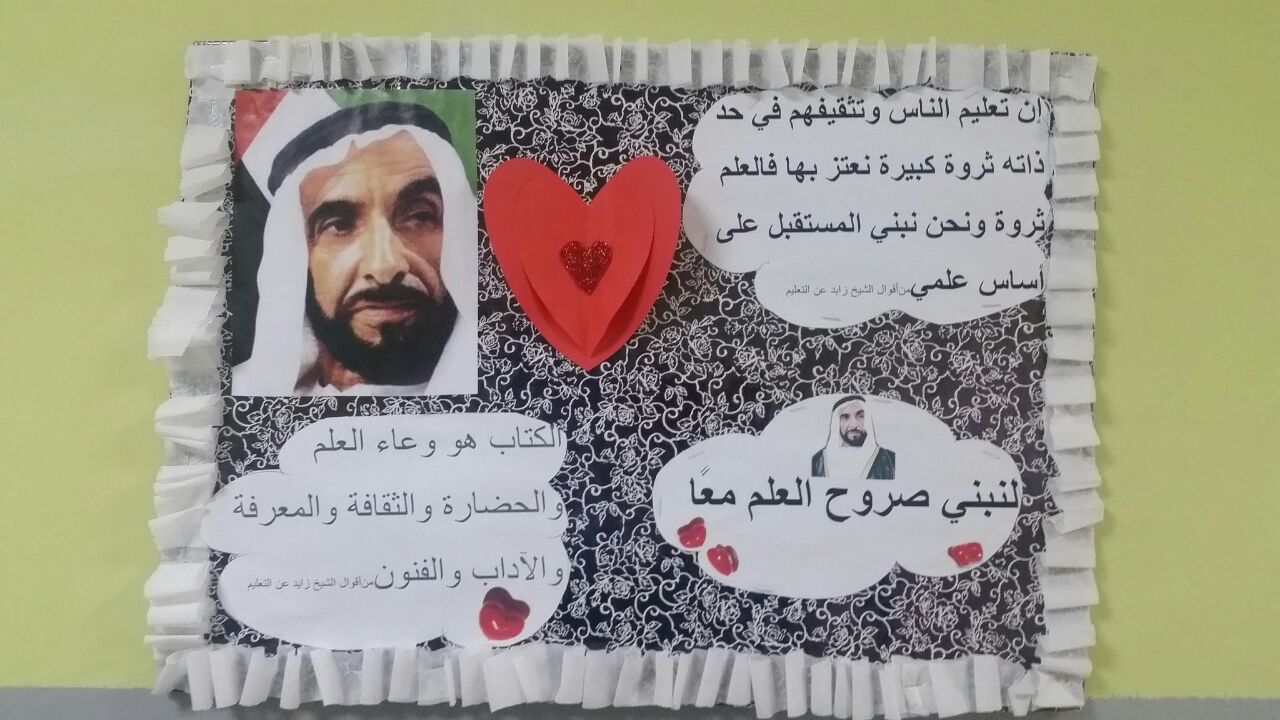 إن تعليم الناس وتثقيفهم في حد
ذاته ثروة كبيرة نعتز بها فالعلم
ثروة ونحن نبني المستقبل على
أساس علمي من أقوال الشيخ زايد عن التعليم
الكتاب هو وعاء العلم
والحضارة والثقافة والمعرفة
والآداب والفنون من أقوال الشيخ زايد عن التعليم
لنبني صروح العلم معًا